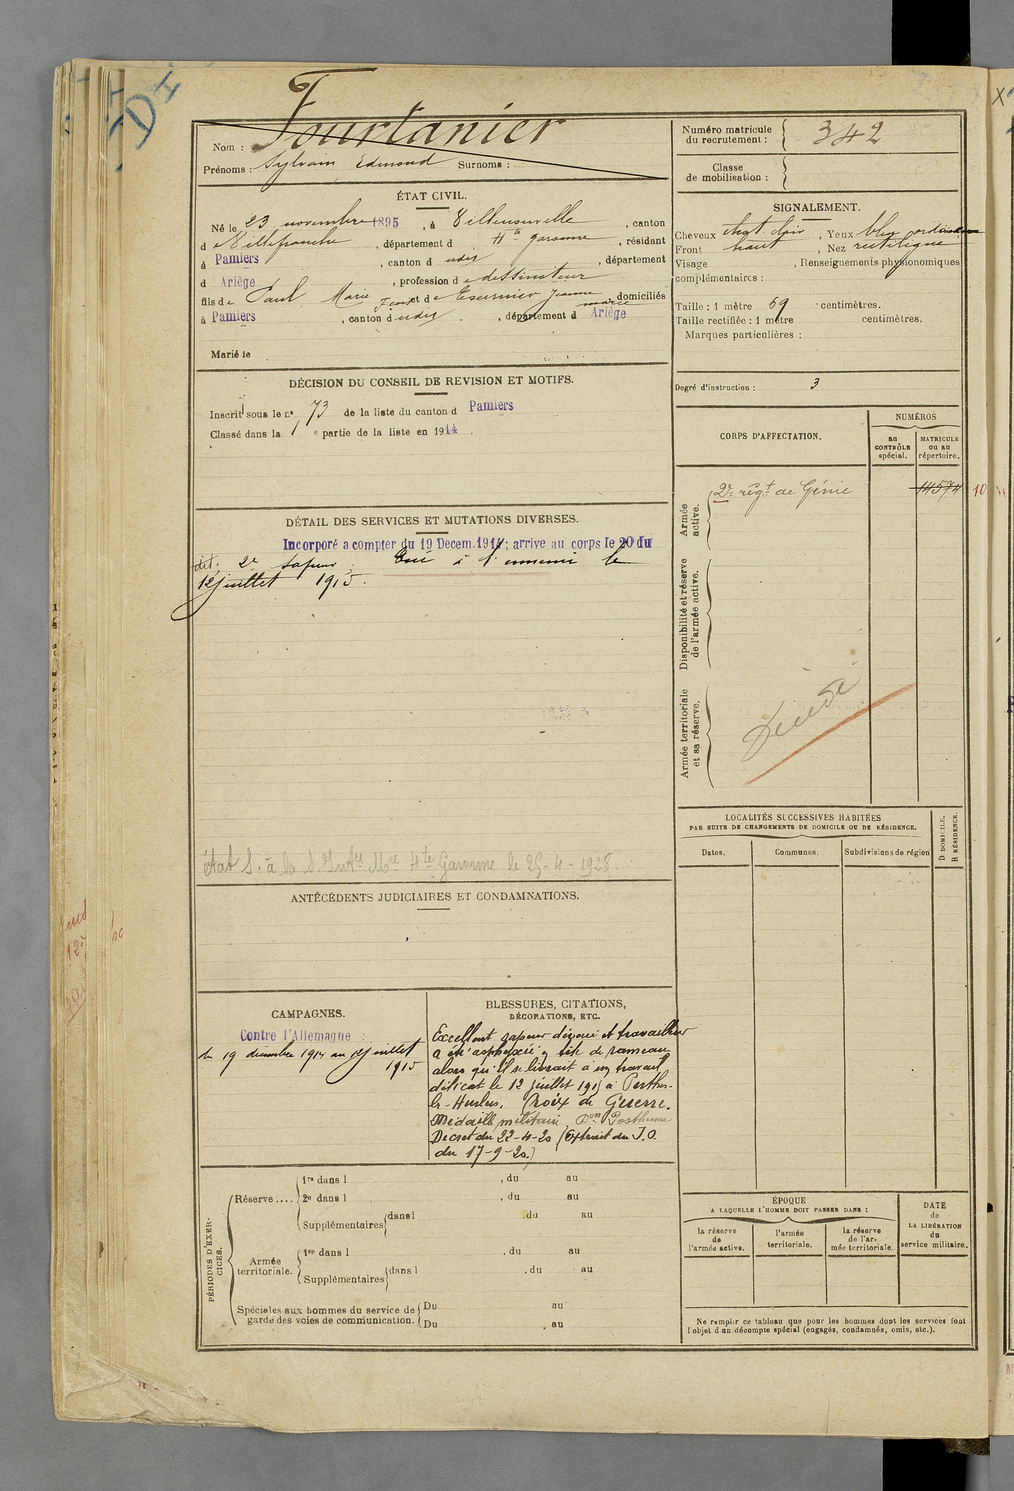 Fourtanier
Nom :
Prénoms : Sylvain Edmond Surnoms :
Numéro matricule du recrutement : 342
Classe de mobilisation :
ÉTAT CIVIL.
Né le 23 novembre 1895, à Villenouvelle, canton
d Villefranche, département d Hte Garonne, résidant
à Pamiers, canton d udit, département
d Ariège, profession d dessinateur
fils de Paul Marie et de Jeanne Marie domiciliés
à Pamiers, canton d udit, département d Ariège
Marié le
SIGNALEMENT.
Cheveux chat clair, Yeux bleu
Front haut, Nez rectiligne
Visage , Renseignements physionomiques
complémentaires :
Taille : 1 mètre 69 centimètres.
Taille rectifiée : 1 mètre centimètres.
Marques particulières :
Degré d'instruction : 3
DÉCISION DU CONSEIL DE REVISION ET MOTIFS.
Inscrit sous le n° 73 de la liste du canton d Pamiers
Classé dans la 1 e partie de la liste en 1914.
CORPS D'AFFECTATION.
NUMÉROS
au CONTRÔLE spécial.
MATRICULE ou au répertoire.
Armée active.
2e régt de Génie 14574
Disponibilité et réserve de l'armée active.
Armée territoriale et sa réserve.
Décédé
DÉTAIL DES SERVICES ET MUTATIONS DIVERSES.
Incorporé a compter du 19 Decem. 1914; arrive au corps le 20 du
dit; 2e sapeur. Tué à l'ennemi le
12 juillet 1915.
État S. à la S. Intce Mre Hte Garonne le 25-4-1928
LOCALITÉS SUCCESSIVES HABITÉES
PAR SUITE DE CHANGEMENTS DE DOMICILE OU DE RÉSIDENCE.
Dates. Communes. Subdivisions de région
D DOMICILE.
R RÉSIDENCE.
ANTÉCÉDENTS JUDICIAIRES ET CONDAMNATIONS.
CAMPAGNES.
Contre l'Allemagne :
du 19 décembre 1914 au 12 juillet
1915
BLESSURES, CITATIONS,
DÉCORATIONS, ETC.
Excellent sapeur dévoué et travailleur
a été asphyxié en tête de rameau
alors qu'il se livrait à un travail
délicat le 12 juillet 1915 à Perthes-
les-Hurlus. Croix de Guerre.
Médaille militaire Posthume
Décret du 22-4-20 (Extrait du J.O.
du 17-9-20.)
PÉRIODES D'EXERCICES.
Réserve....
1re dans l , du au
2e dans l , du au
Supplémentaires dans l , du au
Armée territoriale.
1re dans l , du au
Supplémentaires dans l , du au
Spéciales aux hommes du service de garde des voies de communication.
Du au
Du au
ÉPOQUE
A LAQUELLE L'HOMME DOIT PASSER DANS :
la réserve de l'armée active.
l'armée territoriale.
la réserve de l'armée territoriale.
DATE
de
LA LIBÉRATION
du
service militaire.
Ne remplir ce tableau que pour les hommes dont les services font
l'objet d'un décompte spécial (engagés, condamnés, omis, etc.).